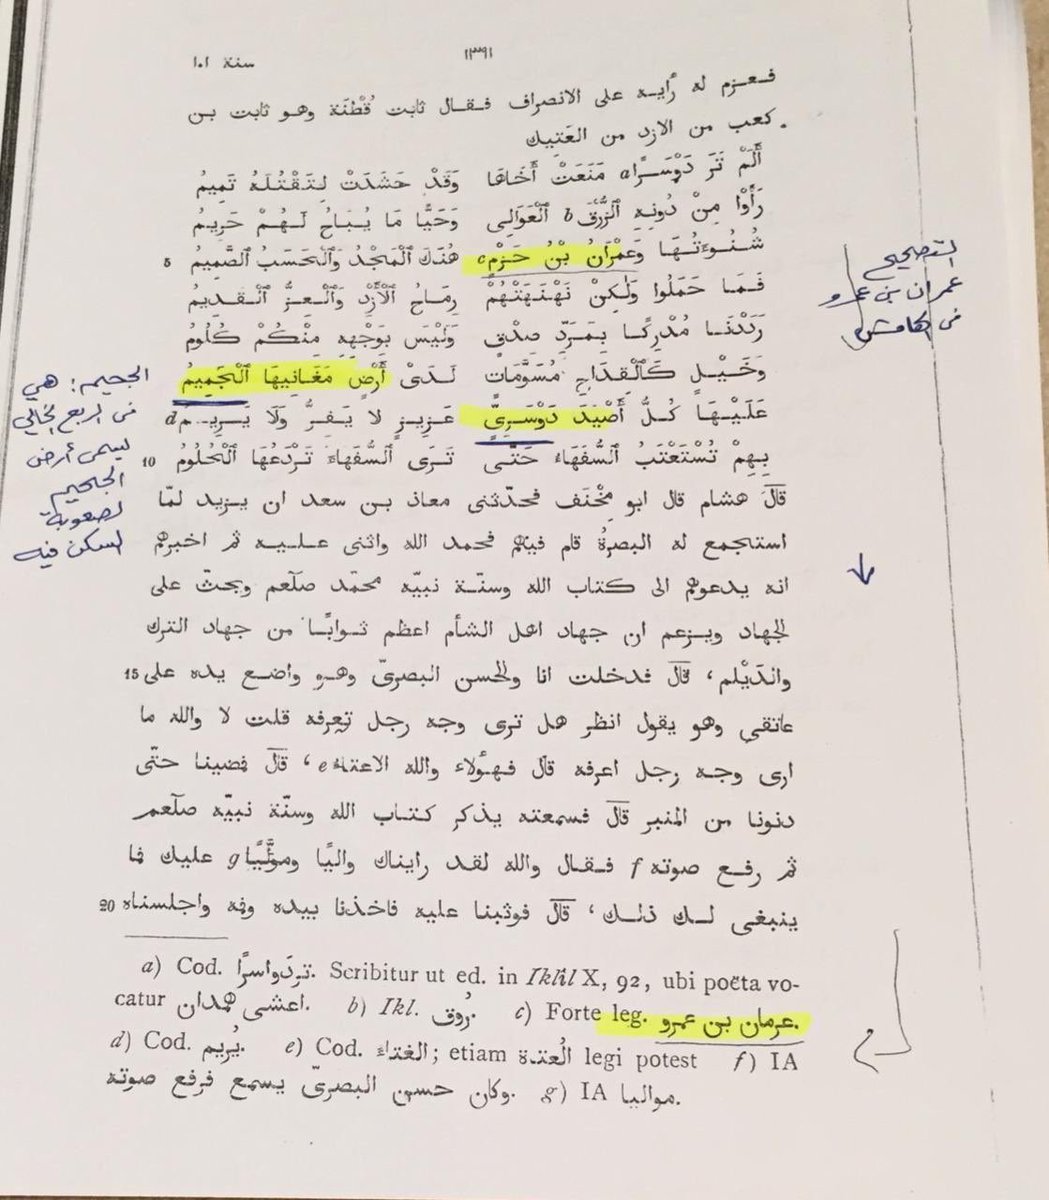 سنة ١٠١
١٣٩١
فعزم له رأيه على الانصراف فقال ثابت قُطْنَة وهو ثابت بن
كعب من الازد من العَتِيك
أَلَمْ تَرَ دَوْسَرًا a مَنَعَتْ أَخَاهَا وَقَدْ حَشَدَتْ لِتَقْتُلَهُ تَمِيمُ
رَأَوْا مِنْ دُونِهِ ٱلزُّرْقَ b ٱلْعَوَالِى وَحَيًّا مَا يُبَاحُ لَهُمْ حَرِيمُ
شُنُوءَتُهَا وَعِمْرَانُ بْنُ حَزْمٍ c هُنَاكَ ٱلْمَجْدُ وَٱلْحَسَبُ ٱلصَّمِيمُ 5
فَمَا حَمَلُوا وَلَكِنْ نَهْنَهَتْهُمْ رِمَاحُ ٱلْأَزْدِ وَٱلْعِزُّ ٱلْقَدِيمُ
رَدَدْنَا مُدْرِكًا بِمَرَدِّ صِدْقٍ وَلَيْسَ بِوَجْهِهِ مِنْكُمْ كُلُومُ
وَخَيْلٍ كَٱلْقِدَاحِ مُسَوَّمَاتٍ لَدَىْ أَرْضٍ مَغَانِيهَا ٱلْجَمِيمُ
عَلَيْهَا كُلُّ أَصْيَدَ دَوْسَرِىٍّ عَزِيزٍ لا يَفِرُّ وَلَا يَرِيمُ d
بِهِمْ تُسْتَعْتَبُ ٱلسُّفَهَاءُ حَتَّى تَرَى ٱلسُّفَهَاءَ تَرْدَعُهَا ٱلْحُلُومُ 10
قال هشام قال ابو مِخْنَف فحدّثنى معاذ بن سعد ان يزيد لمّا
استجمع له البصرةُ قام فيهم فحمد الله واثنى عليه ثم اخبرهم
انه يدعوهم الى كتاب الله وسنّة نبيّه محمّد صلّعم ويحثّ على
الجهاد ويزعم ان جهاد اهل الشأم اعظم ثوابًا من جهاد الترك
والدَيْلم، قال فدخلت انا والحسن البصرىّ وهو واضع يده على 15
عاتقى وهو يقول انظر هل ترى وجه رجل تعرفه قلت لا والله ما
ارى وجه رجل اعرفه قال فهؤلاء والله الاعتاء e، قال فمضينا حتّى
دنونا من المنبر قال فسمعته يذكر كتاب الله وسنّة نبيّه صلّعم
ثم رفع صوته f فقال والله لقد رايناك واليًا وموَلًّيا g عليك فما
ينبغى لك ذلك، قال فوثبنا عليه فاخذنا بيده وفمه واجلسناه 20
a) Cod. تردواسرًا. Scribitur ut ed. in Iklîl X, 92, ubi poëta vo-
catur اعشى همدان. b) Ikl. زُوق. c) Forte leg. عرمان بن عمرو.
d) Cod. يُريم. e) Cod. الغتاء; etiam العُتدة legi potest f) IA
وكان حسن البصرىّ يسمع فرفع صوته. g) IA مواليا.
التصحيح
عمران بن عمرو
فى الهامش
الجحيم: هي
فى الربع الخالي
يسمى أرض
الجحيم
لصعوبة
السكن فيه